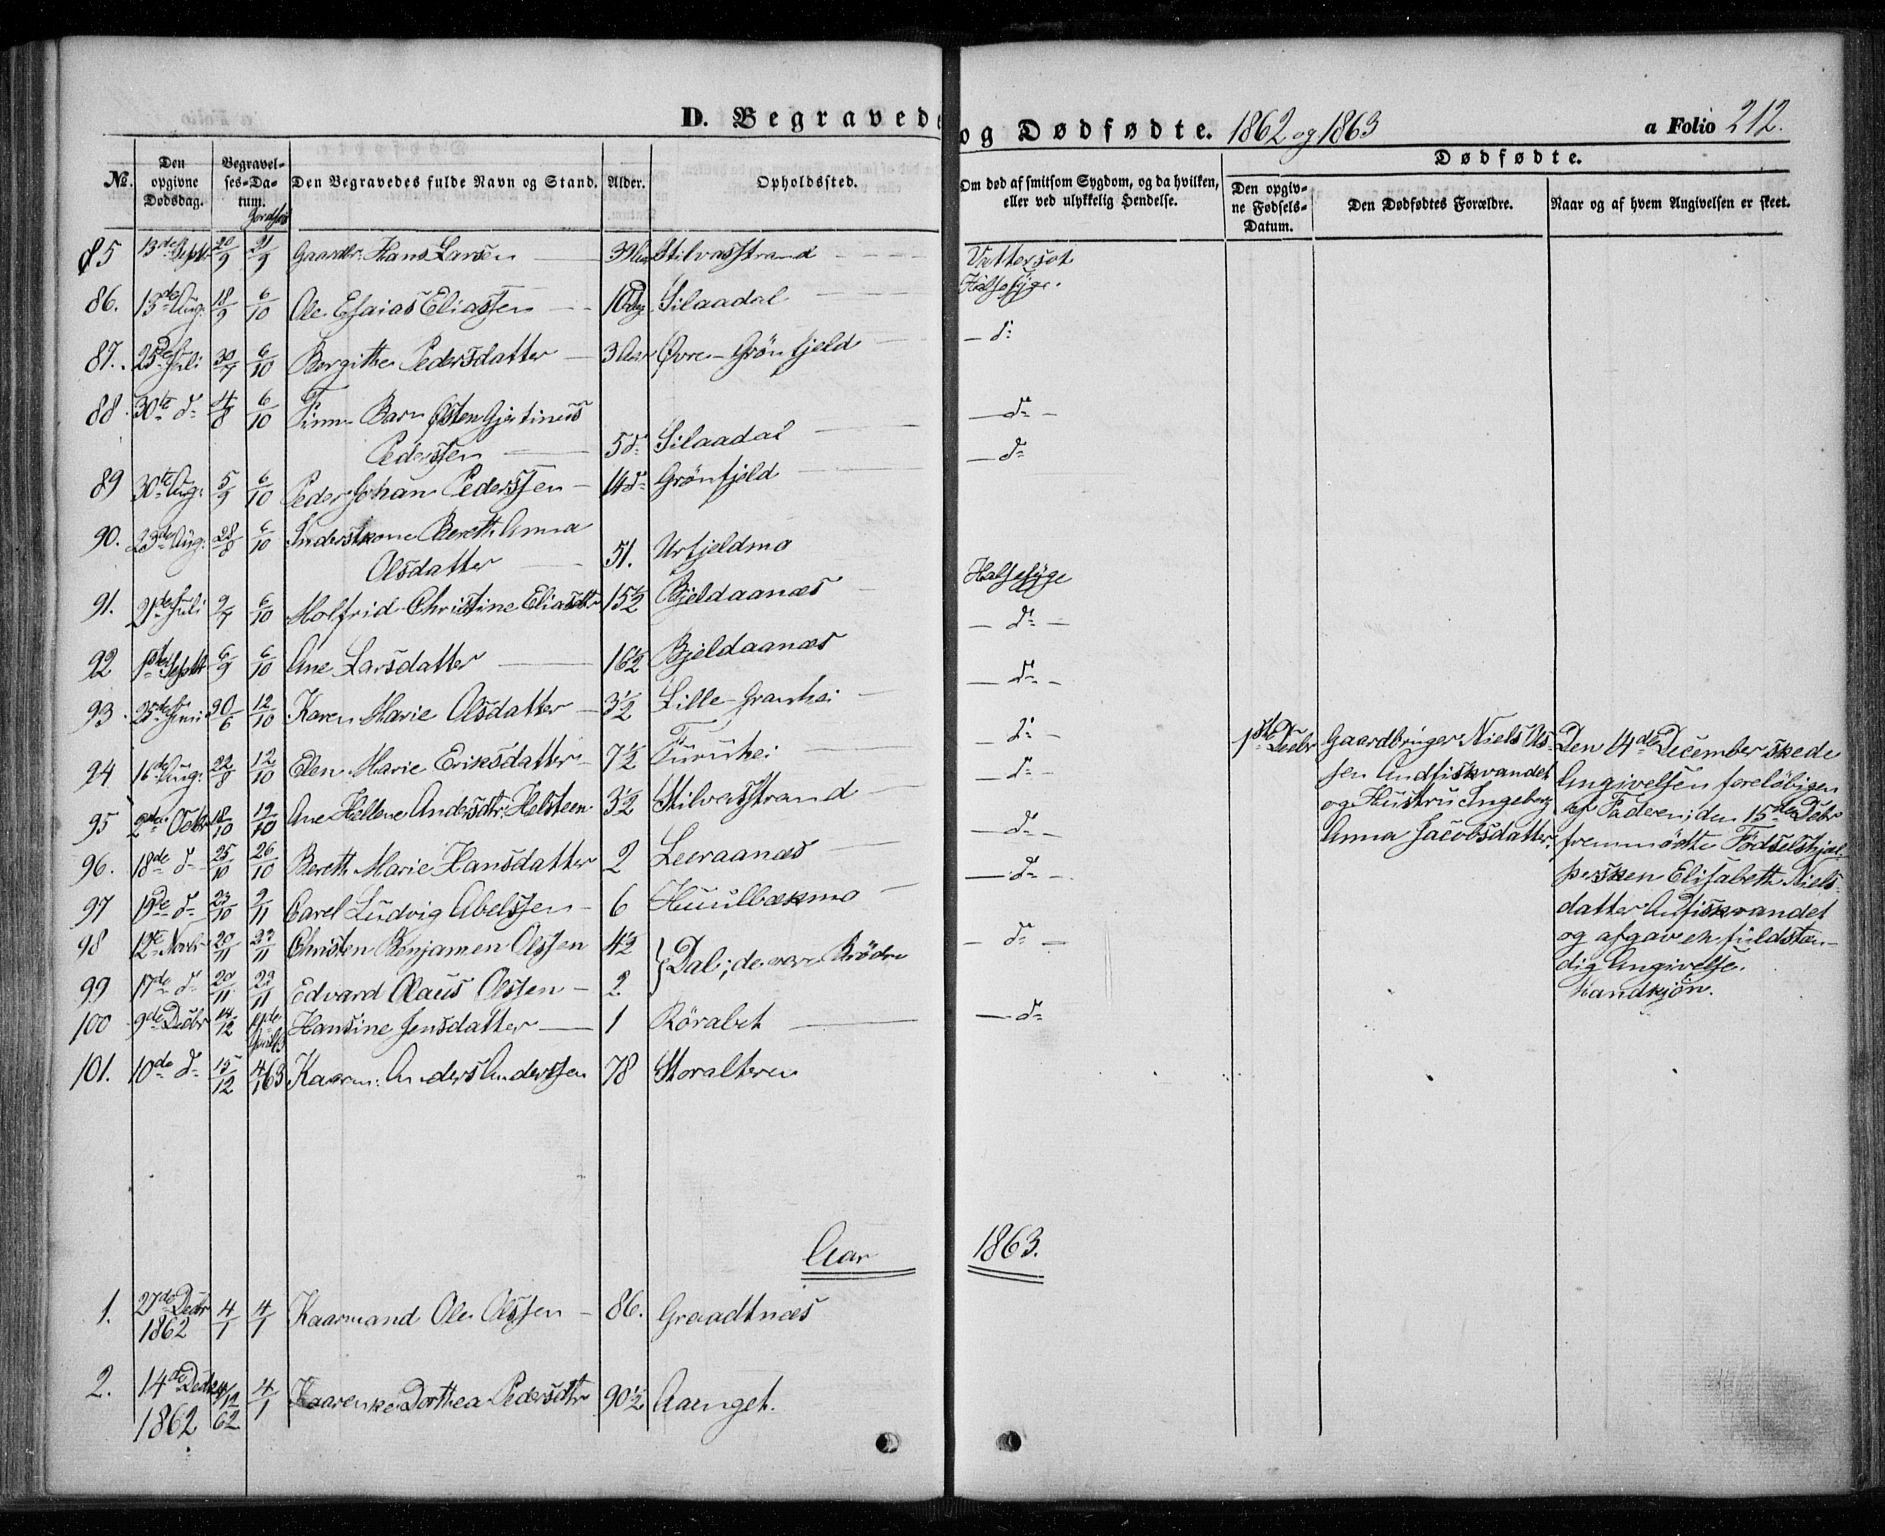 D. Begravede og Dødfødte. 1862 og 1863 a Folio 212.
Dødfødte.
No. Den opgivne Dødsdag. Begravelses-Datum. Jordfæs Den Begravedes fulde Navn og Stand. Alder. Opholdssted. Om død af smitsom Sygdom, og da hvilken, eller ved ulykkelig Hendelse. Den opgivne Fødsels-Datum. Den Dødfødtes Forældre. Naar og af hvem Angivelsen er skeet.
85 13de Septr 20/9 21/9 Gaardbr: Hans Larsen 39 Aar Stilvasstrand Vattersot
86. 13de Aug: 18/9 6/10 Ole Esaias Eliassen 10 Silaadal Halssyge.
87. 25de Juli 30/7 6/10 Bergithe Pedersdatter 3 Aar Øvre-Grønfjeld d:
88 30te d: 4/8 6/10 Finne Barn Østen Gjertinus
Pederssen 5 d: Silaadal d:
89 30te Aug: 5/9 6/10 Peder Johan Pederssen 14 d: Grønfjeld d:
90. 23de Aug: 28/8 6/10 Inderstkone Bereth Anna
Olsdatter 51. Urfjeldmo
91. 21de Juli 9/7 6/10 Molfrid Christine Eliasdtr 15½ Bjeldaanæs Halssyge
92 1ste Septbr 6/9 6/10 Ane Larsdatter 16½ Bjeldaanæs d:
93. 25de Juni 30/6 12/10 Karen Marie Olsdatter 3½ Lille-Granhei d:
94 16de Aug: 22/8 12/10 Elen Marie Eriksdatter 7½ Furuhei d:
95 2den Octbr 18/10 19/10 Ane Hellene Andersdtr: Helsteen 3½ Stilvasstrand d:
96. 18de d: 25/10 26/10 Bereth Marie Hansdatter 2 Leeraanæs d:
97 19de d: 23/10 2/11 Carel Ludvig Abelssen 6 Huulbækmo d:
98 12te Novbr 20/11 23/11 Christen Benjamen Olssen 4½
} Dal; de vare Brødre d:
99 17de d: 20/11 23/11 Edvard Olaus Olssen 2
100 9de Decbr 14/12 19de April 63 Hansine Jensdatter 1 Rørabet d:
101. 10de d: 15/12 4/1 63 Kaarm: Anders Anderssen 78 Storalteren
1ste Decbr Gaardbruger Niels Ols-
sen Andfiskvandet
og Hustru Ingeborg
Anna Jacobsdatter.
Den 14de December skede
Angivelsen foreløbigen
af Faderen; den 15de Decbr
fremmødte Fødselshjæl-
persken Elisabeth Niels-
datter Anfiskvandet
og afgav en fuldstæn-
dig Angivelse.
Mandkjøn.
Aar 1863.
1. 27de Decbr 4/1 4/1 Kaarmand Ole Olssen 86. Graadtnæs
1862
2. 14de Decbr 4/1 Kaarenke Dorthea Pedersdtr 90½ Aaenget.
1862 62